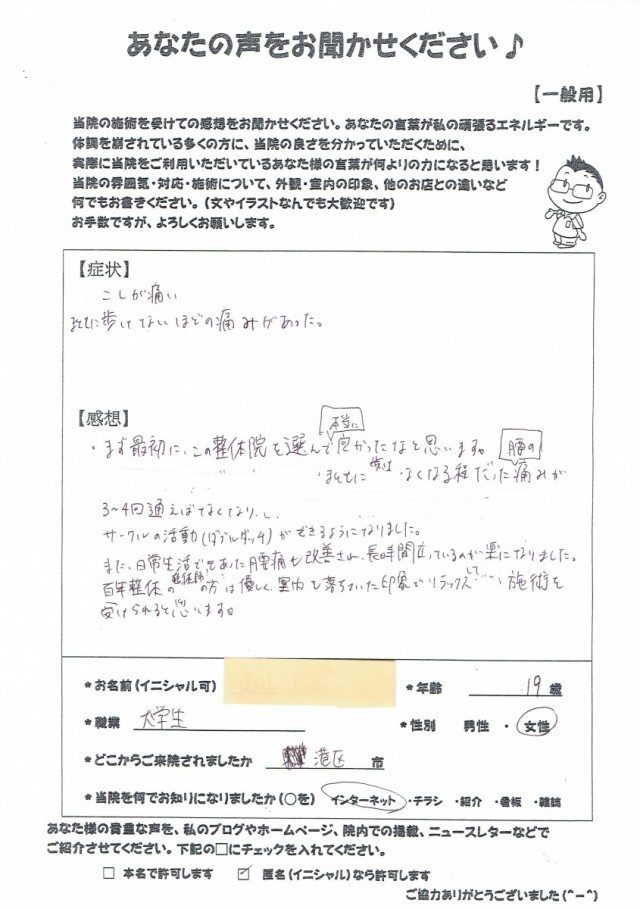 あなたの声をお聞かせください♪
【一般用】
当院の施術を受けての感想をお聞かせください。あなたの言葉が私の頑張るエネルギーです。
体調を崩されている多くの方に、当院の良さを分かっていただくために、
実際に当院をご利用いただいているあなた様の言葉が何よりの力になると思います!
当院の雰囲気・対応・施術について、外観・室内の印象、他のお店との違いなど
何でもお書きください。(文やイラストなんでも大歓迎です)
お手数ですが、よろしくお願いします。
【症状】
こしが痛い
まともに歩けてないほどの痛みがあった。
【感想】
・まず最初に、この整体院を選んで本当に良かったなと思います。腰の
まともに歩けなくなる程だった痛みが
3~4回通えばなくなり、
サークルの活動(ダブルダッチ)ができるようになりました。
また、日常生活でもあった腰痛も改善され、長時間立っているのが楽になりました。
百年整体の整体師の方は優しく、室内も落ちついた印象でリラックスして施術を
受けられると思います。
*お名前(イニシャル可)
*年齢 19 歳
*職業 大学生
*性別 男性 ・ 女性
*どこからご来院されましたか 港区 市
*当院を何でお知りになりましたか(○を) インターネット ・チラシ ・紹介 ・看板 ・雑誌
あなた様の貴重な声を、私のブログやホームページ、院内での掲載、ニュースレターなどで
ご紹介させてください。下記の□にチェックを入れてください。
□ 本名で許可します ☑ 匿名(イニシャル)なら許可します
ご協力ありがとうございました(^-^)